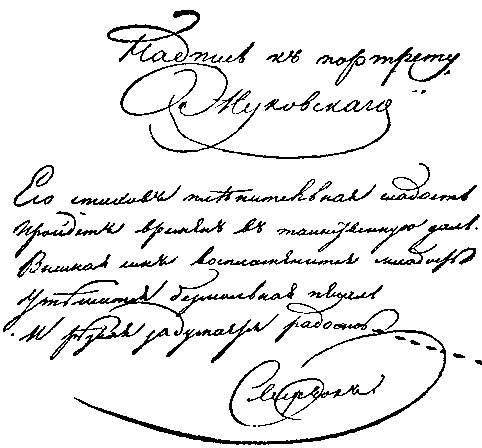 Надпись къ портрету
Жуковскаго
Его стиховъ плѣнительная сладость
Пройдетъ временъ въ таинственную даль.
Внимая имъ воспламенится младость
Утѣшится безмолвная печаль
И рѣзвая задумается радость
Сверчокъ